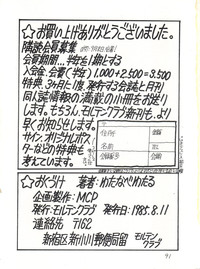 ☆お買い上げありがとうございました。
隣読会員募集
会員期間…半年を1期とする
入会金、会費(半年) 1.000+2.500=3.500
特典、3ヶ月に1度、発行する会誌と月刊
同人誌情報の満載の小冊をお送り
します。もちろん、モルテンクラブ新刊も、より
早くお知らせします。
サイン、オリジナルポス
ターなどの特典も
考えています。
住所
名前
☆おくづけ 著者:わたなべわたる
企画製作:MCP
発行:モルテンクラブ 発行日:1985.8.11
連絡先 〒162
新宿区新小川郵便局留 モルテンクラブ
41